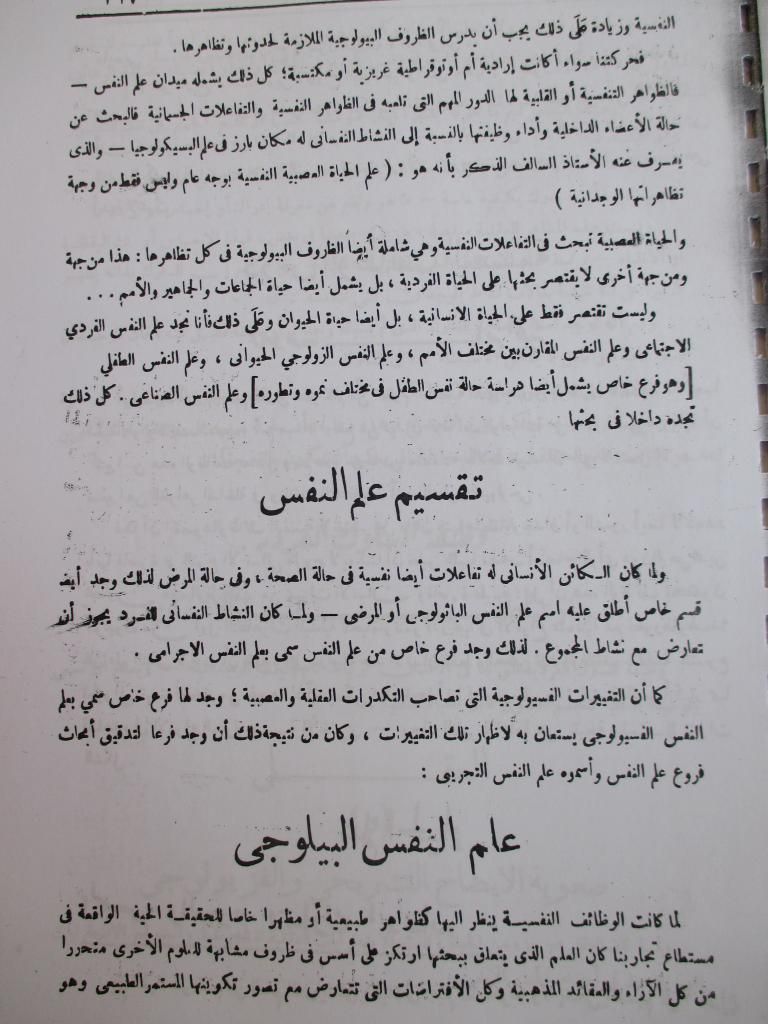 النفسية وزيادة على ذلك يجب أن يدرس الظروف البيولوجية الملازمة لحدوثها وتظاهرها .
فحركتنا سواء أكانت إرادية أم أوتوقراطية غريزية أو مكتسبة ؛ كل ذلك يشمله ميدان علم النفس —
فالظواهر التنفسية أو القلبية لها الدور المهم التى تلعبه فى الظواهر النفسية والتفاعلات الجسمانية فالبحث عن
حالة الأعضاء الداخلية وأداء وظيفتها بالنسبة إلى النشاط النفسانى له مكان بارز فى علم البسيكولوجيا — والذى
يعرف عنه الأستاذ السالف الذكر بأنه هو : ( علم الحياة العصبية النفسية بوجه عام وليس فقط من وجهة
تظاهراتها الوجدانية )
والحياة العصبية تبحث فى التفاعلات النفسية وهى شاملة أيضا الظروف البيولوجية فى كل تظاهرها : هذا من جهة
ومن جهة أخرى لا يقتصر بحثها على الحياة الفردية ، بل يشمل أيضا حياة الجماعات والجماهير والأمم . . .
وليست تقتصر فقط على الحياة الانسانية ، بل أيضا حياة الحيوان وعلى ذلك فأنا نجد علم النفس الفردي
الاجتماعى وعلم النفس المقارن بين مختلف الأمم ، وعلم النفس الزولوجي الحيوانى ، وعلم النفس الطفلي
[ وهو فرع خاص يشمل أيضا دراسة حالة نفس الطفل فى مختلف نموه وتطوره ] وعلم النفس الصناعى . كل ذلك
تجده داخلا فى بحثها
تقسيم علم النفس
ولما كان الكائن الأنسانى له تفاعلات أيضا نفسية فى حالة الصحة ، وفى حالة المرض لذلك وجد أيضا
قسم خاص أطلق عليه اسم علم النفس الباثولوجى أو المرضى — ولما كان النشاط النفسانى للفرد يجوز أن
تعارض مع نشاط المجموع . لذلك وجد فرع خاص من علم النفس سمى بعلم النفس الاجرامى .
كما أن التغييرات الفسيولوجية التى تصاحب التكدرات العقلية والعصبية ؛ وجد لها فرع خاص سمي بعلم
النفس الفسيولوجى يستعان به لاظهار تلك التغييرات ، وكان من نتيجة ذلك أن وجد فرعا لتدقيق أبحاث
فروع علم النفس وأسموه علم النفس التجريبى :
علم النفس البيلوجى
لما كانت الوظائف النفسية ينظر اليها كظواهر طبيعية أو مظهرا خاصا للحقيقة الحية الواقعة فى
مستطاع تجاربنا كان العلم الذى يتعلق ببحثها ارتكز على أسس فى ظروف مشابهة للعلوم الأخرى متحررا
من كل الآراء والعقائد المذهبية وكل الأفتراضات التى تتعارض مع تصور تكوينها المستمر الطبيعى وهو